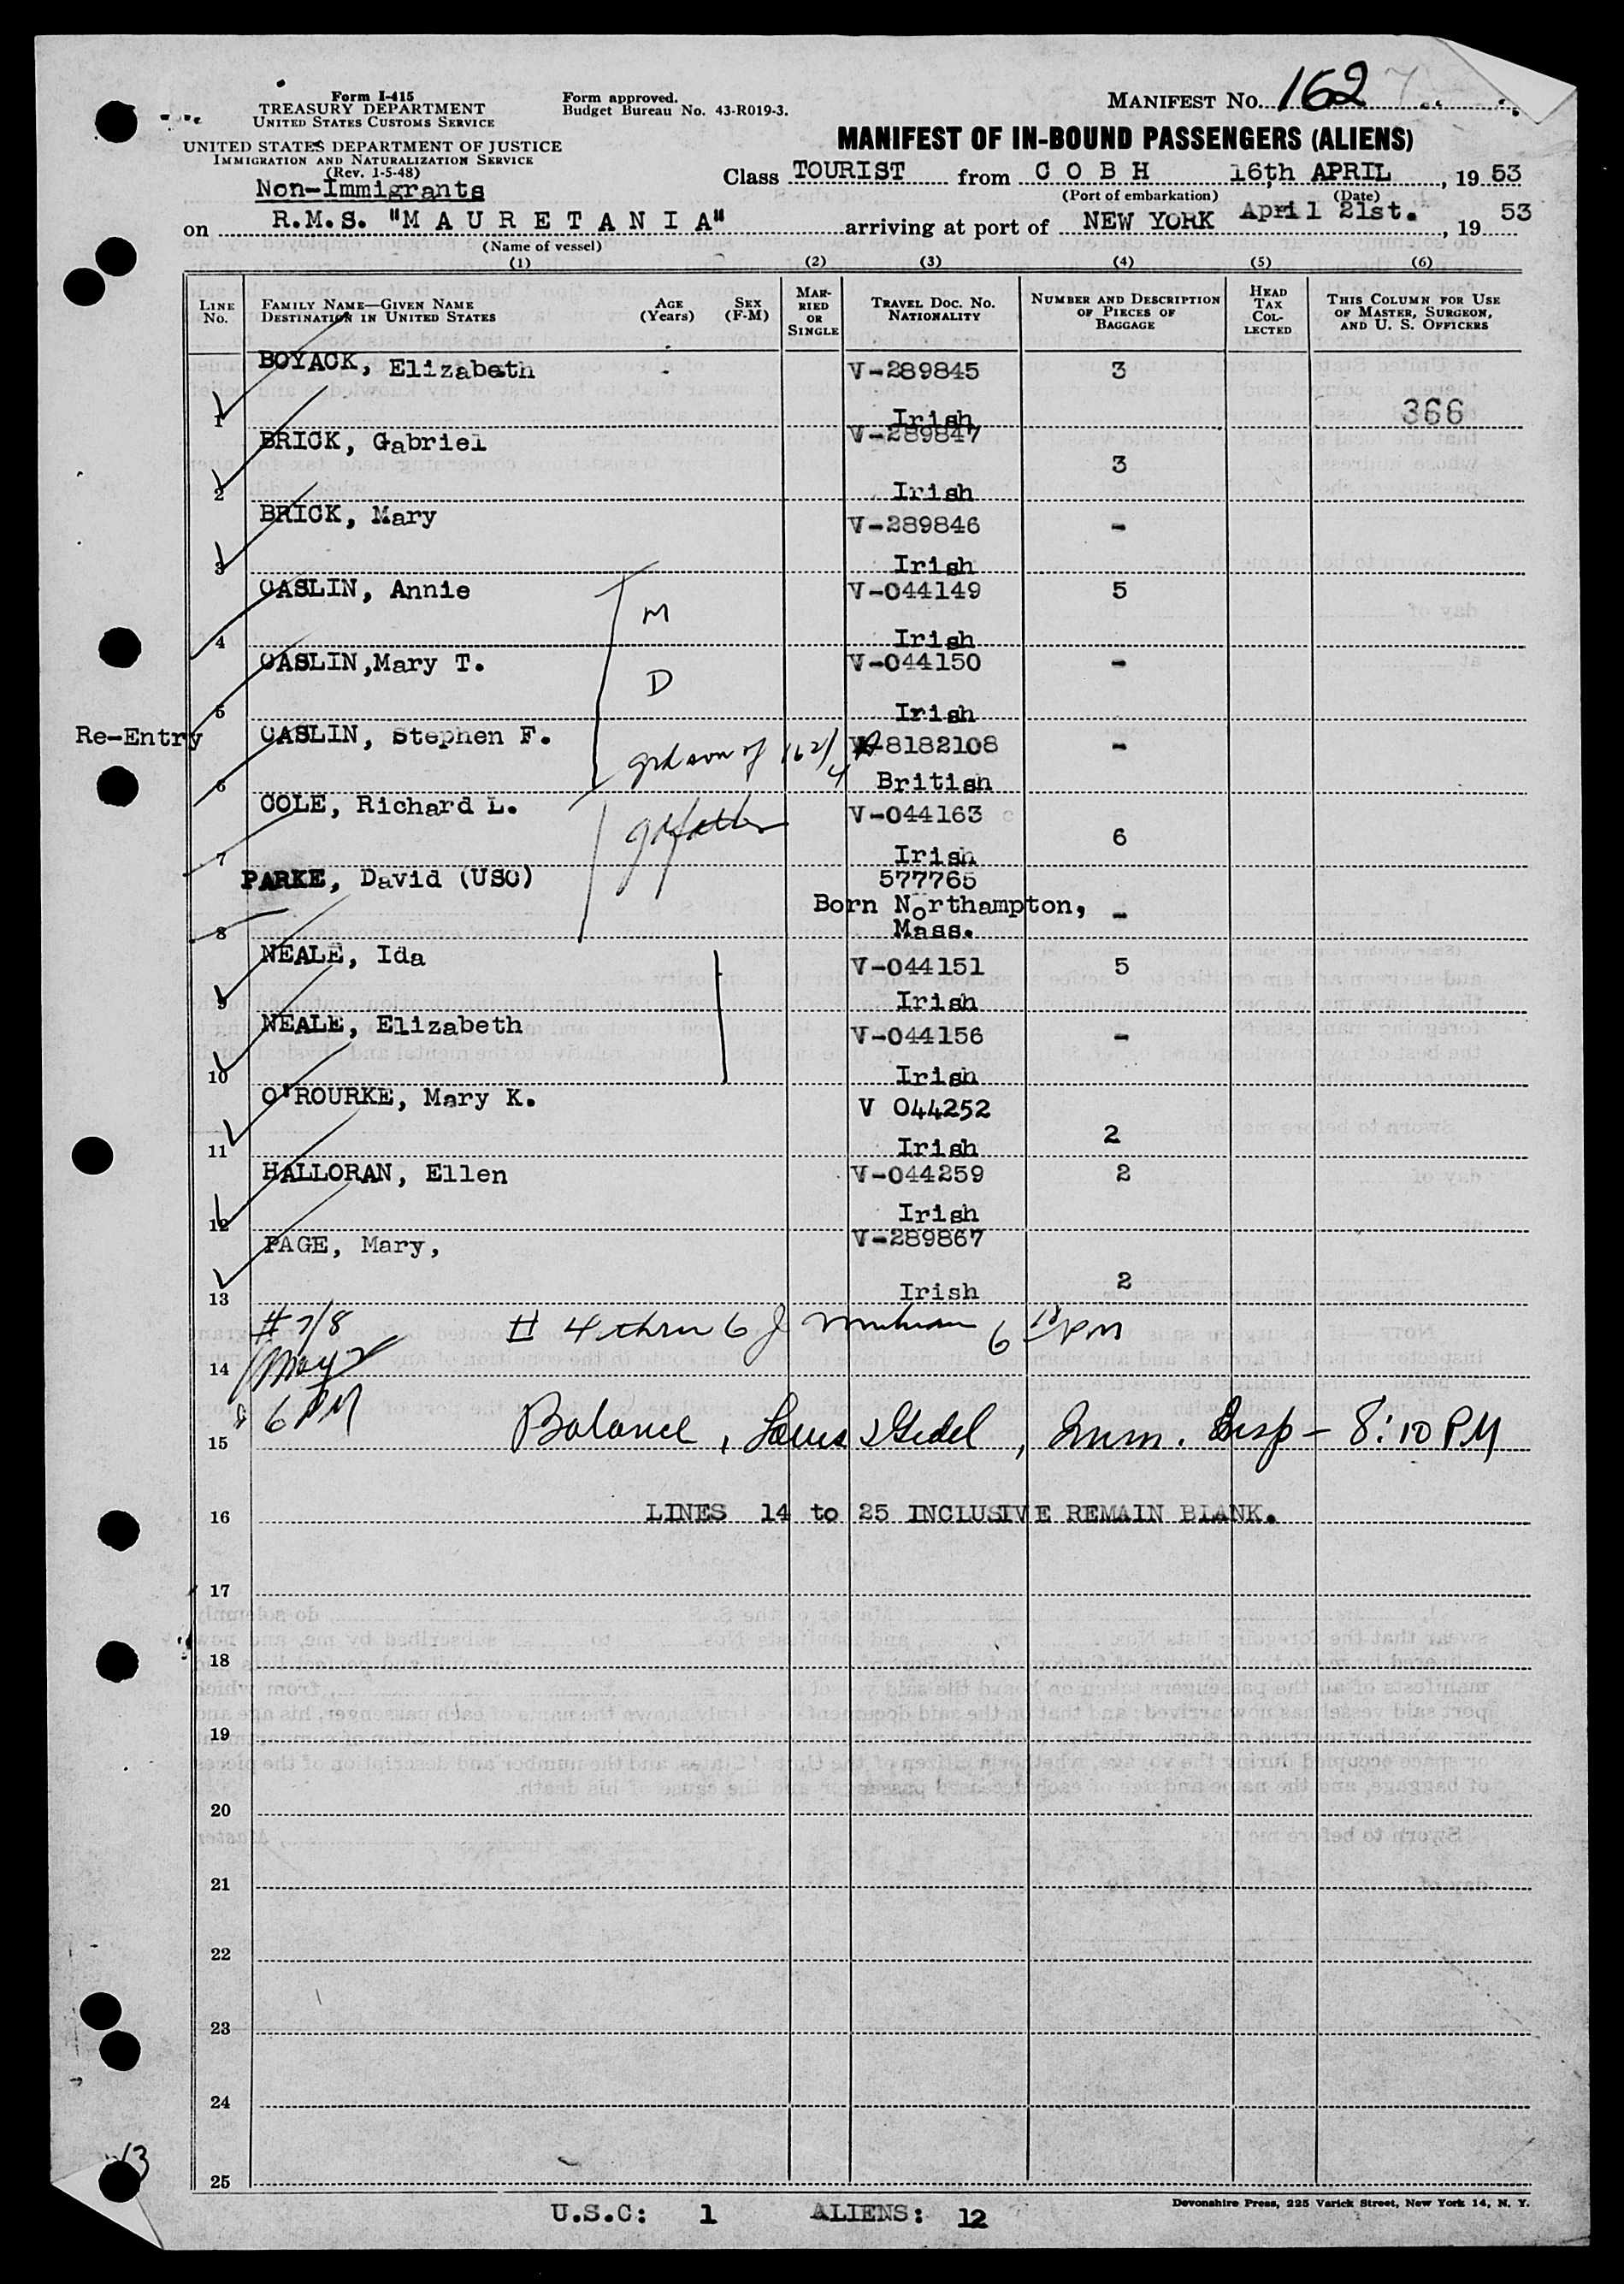 Form I-415
TREASURY DEPARTMENT
UNITED STATES CUSTOMS SERVICE
UNITED STATES DEPARTMENT OF JUSTICE
IMMIGRATION AND NATURALIZATION SERVICE
(Rev. 1-5-48)
Non-Immigrants
Form approved.
Budget Bureau No. 43-R019-3.
MANIFEST No. 162
MANIFEST OF IN-BOUND PASSENGERS (ALIENS)
Class TOURIST from C O B H 16th APRIL, 19 53
(Port of embarkation) (Date)
on R.M.S. "M A U R E T A N I A" arriving at port of NEW YORK April 21st., 19 53
(Name of vessel)
(1) (2) (3) (4) (5) (6)
LINE No. FAMILY NAME—GIVEN NAME DESTINATION IN UNITED STATES AGE (Years) SEX (F-M) MARRIED OR SINGLE TRAVEL DOC. No. NATIONALITY NUMBER AND DESCRIPTION OF PIECES OF BAGGAGE HEAD TAX COLLECTED THIS COLUMN FOR USE OF MASTER, SURGEON, AND U. S. OFFICERS
BOYACK, Elizabeth V-289845 3
1 Irish 366
BRICK, Gabriel V-289847
3
2 Irish
BRICK, Mary V-289846 -
3 Irish
CASLIN, Annie M V-044149 5
4 Irish
CASLIN,Mary T. D V-044150 -
5 Irish
Re-Entry CASLIN, Stephen F. grdson of 162/4 8182108 -
6 British
COLE, Richard L. grfather V-044163
6
7 Irish
PARKE, David (USC) 577765
Born Northampton, -
8 Mass.
NEALE, Ida V-044151 5
9 Irish
NEALE, Elizabeth V-044156 -
10 Irish
O'ROURKE, Mary K. V 044252
2
11 Irish
HALLORAN, Ellen V-044259 2
12 Irish
PAGE, Mary, V-289867
2
13 Irish
#7/8 # 4 thru 6 J 6 PM
14
6 PM
15 Balance, Louis , Imm. Insp - 8:10 PM
16 LINES 14 to 25 INCLUSIVE REMAIN BLANK.
17
18
19
20
21
22
23
24
25
U.S.C: 1 ALIENS: 12
Devonshire Press, 225 Varick Street, New York 14, N. Y.